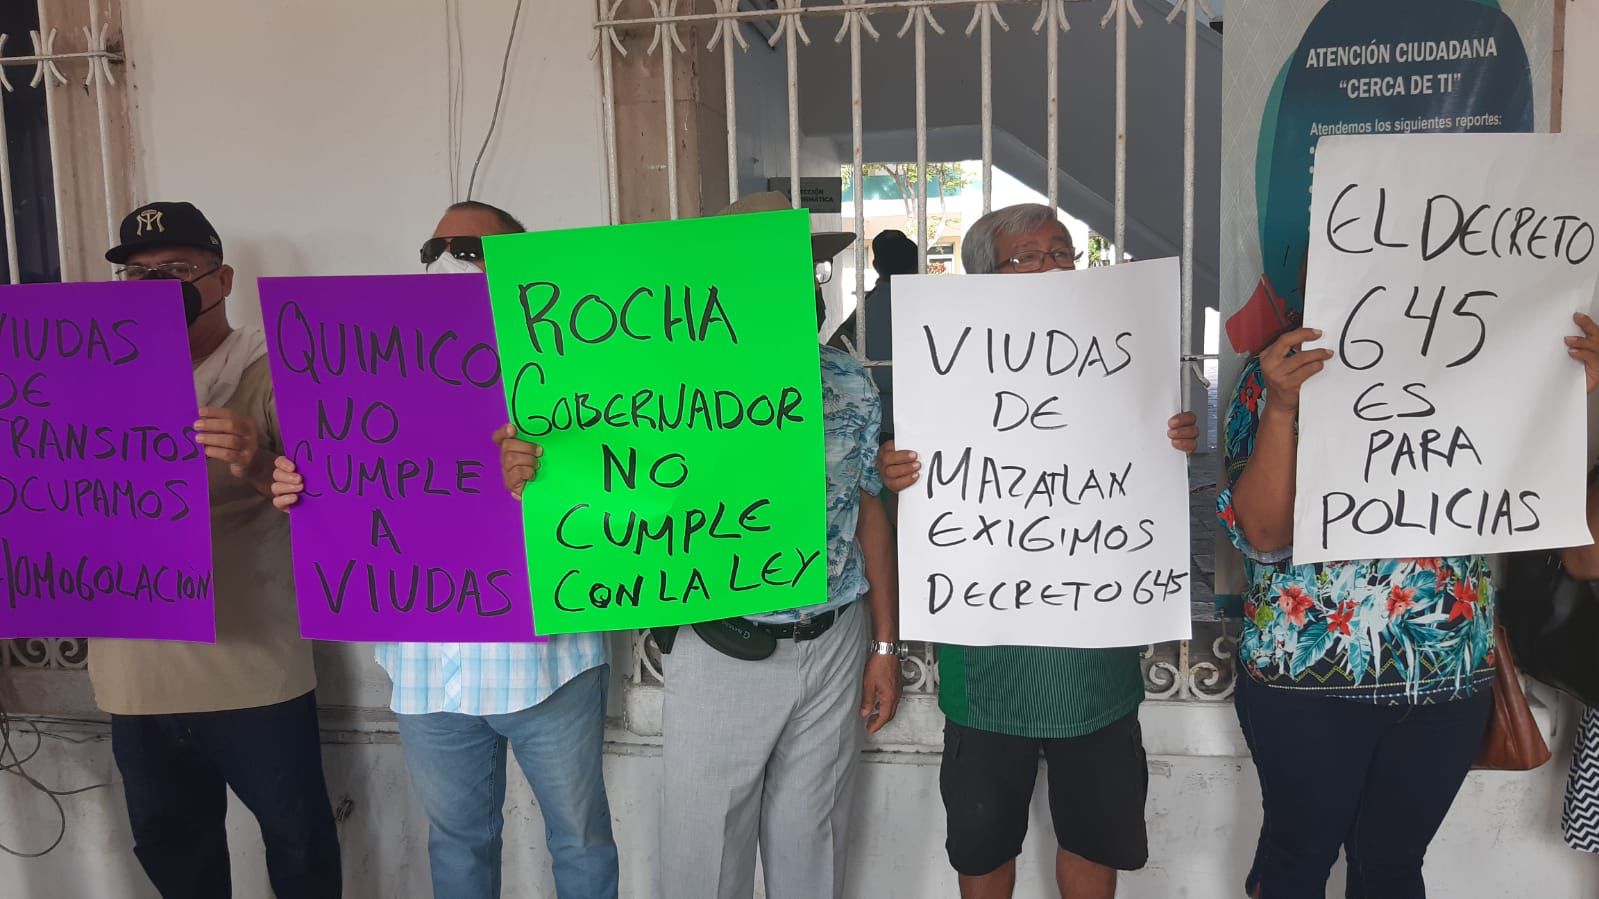 VIUDAS
DE
TRANSITOS
OCUPAMOS
HOMOGOLACIÓN
QUIMICO
NO
CUMPLE
A
VIUDAS
ROCHA
GOBERNADOR
NO
CUMPLE
CON LA LEY
VIUDAS
DE
MAZATLAN
EXIGIMOS
DECRETO 645
EL DECRETO
645
ES
PARA
POLICIAS
ATENCIÓN CIUDADANA
"CERCA DE TI"
Atendemos los siguientes reportes: